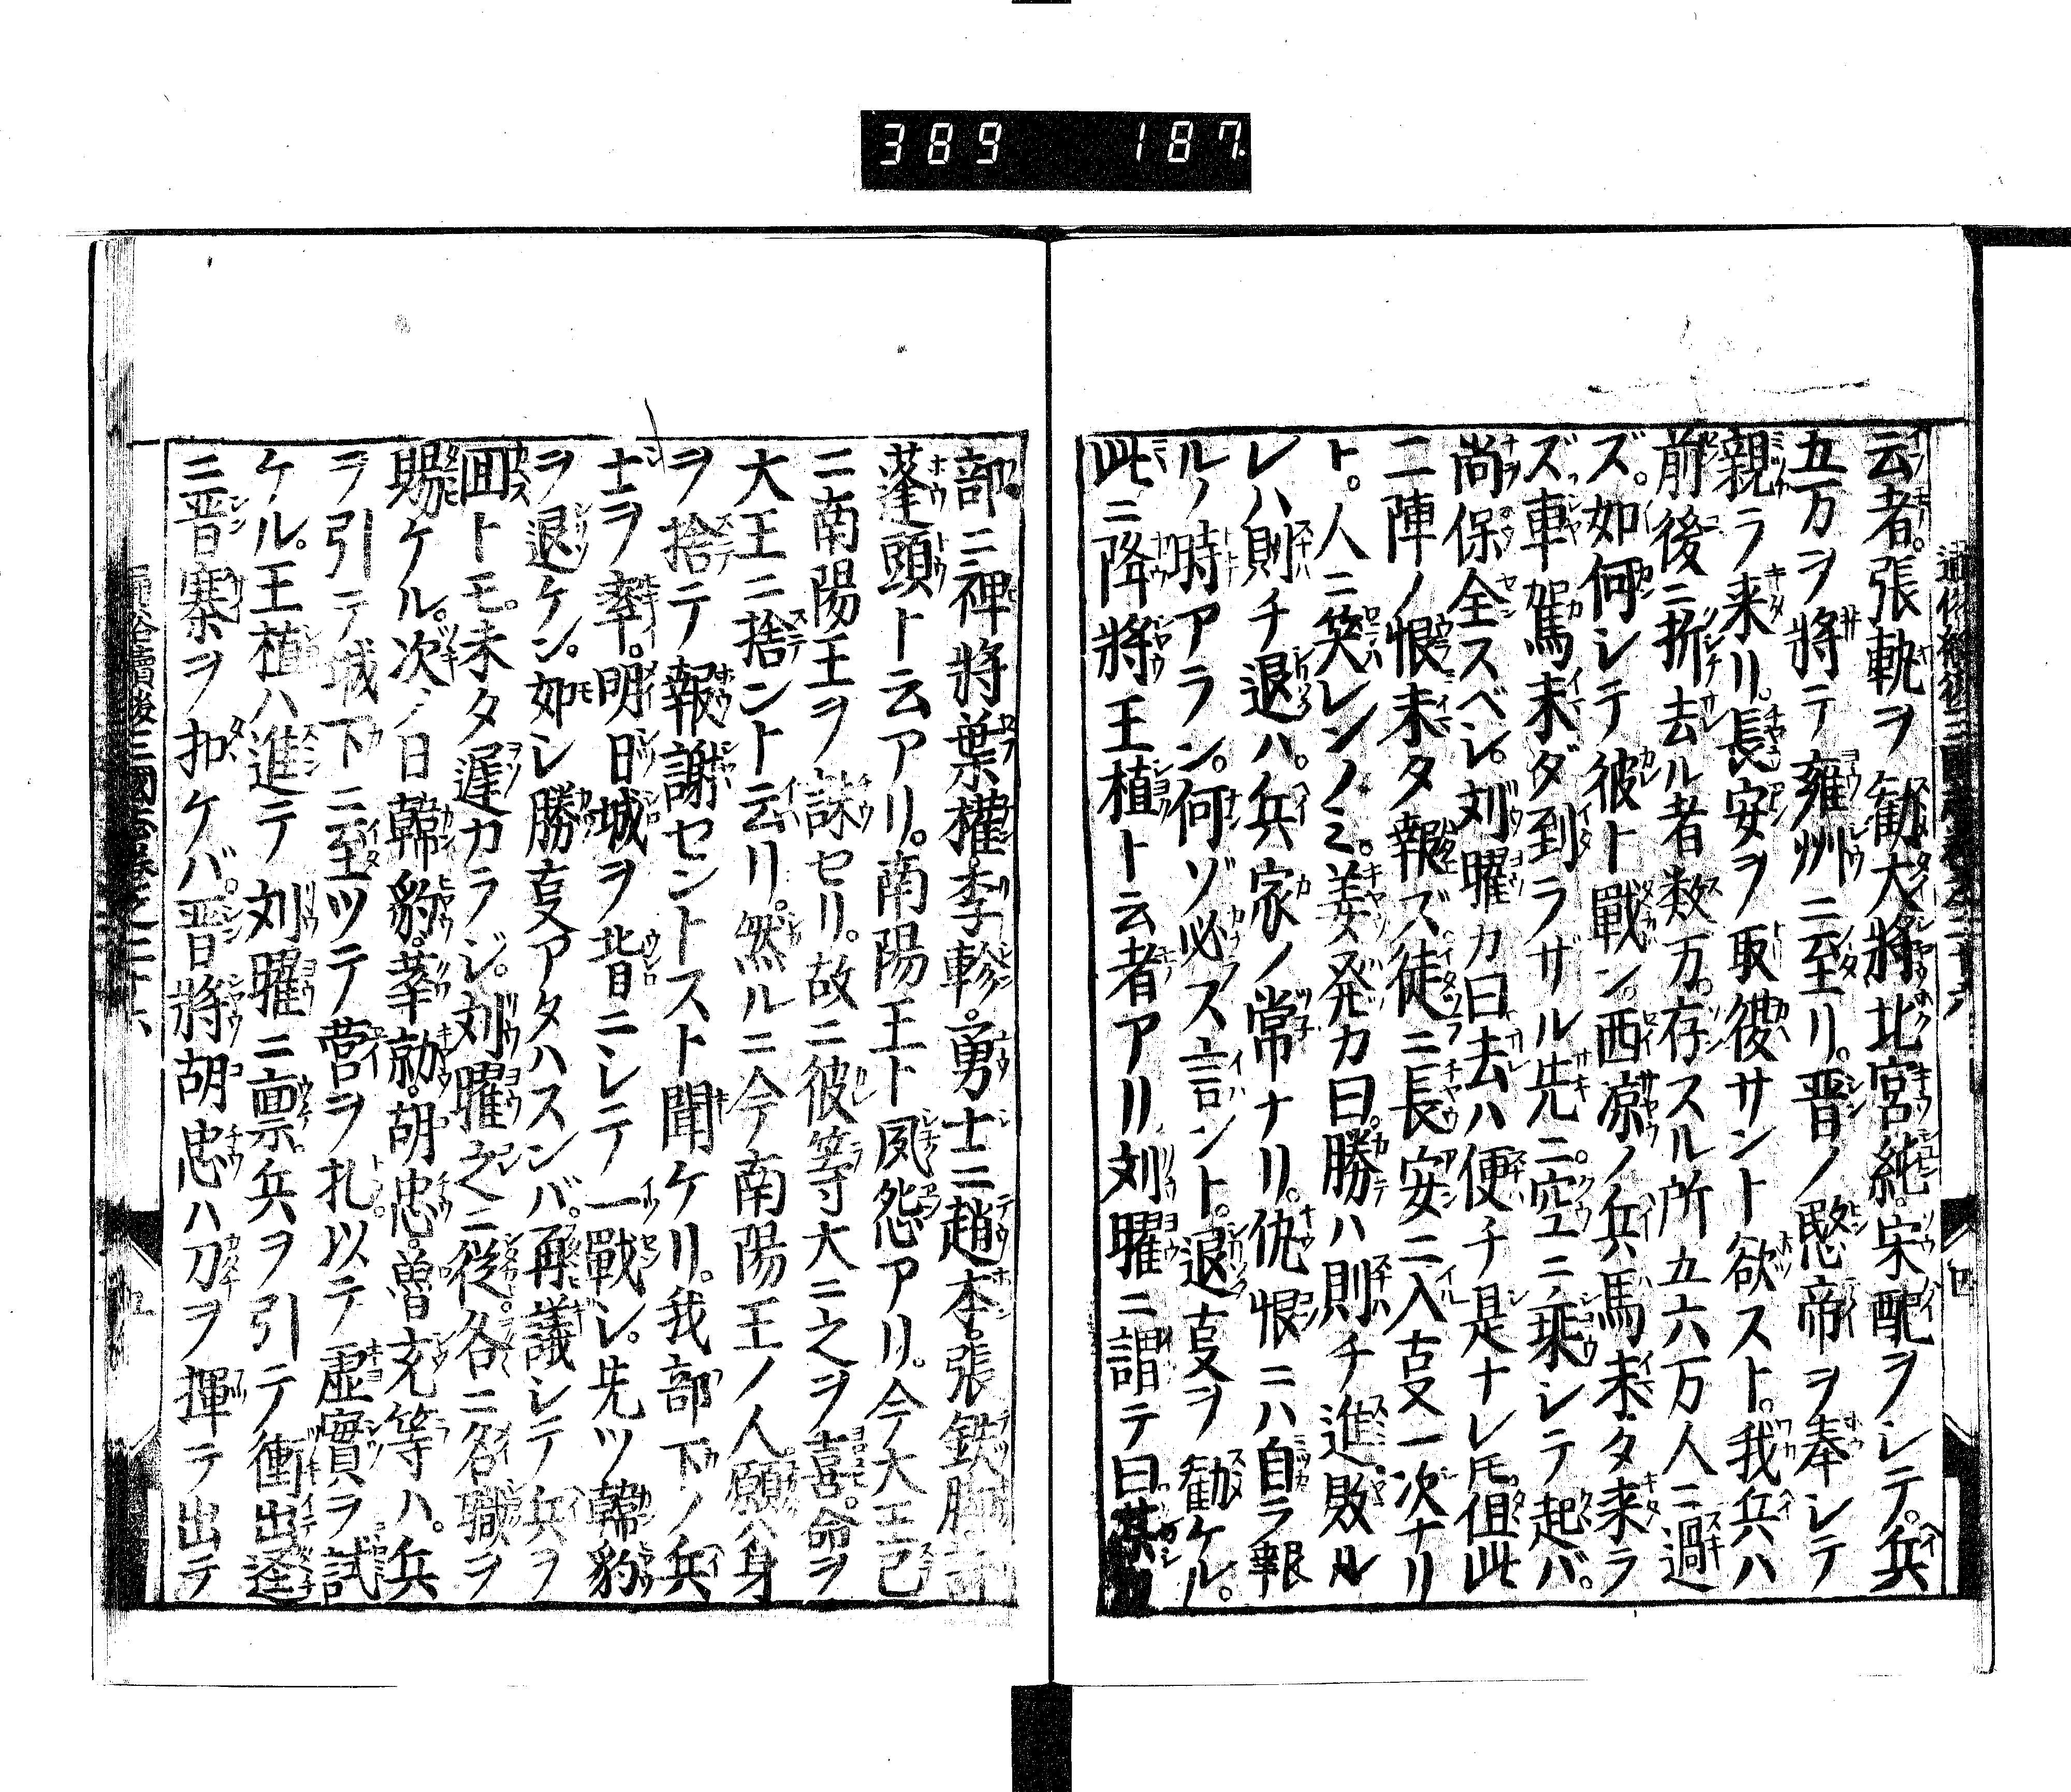 389 187
云者。張軌ヲ勧大將北宮純。宋配ヲシテ。兵
五万ヲ將テ雍州ニ至リ。晋ノ愍帝ヲ奉シテ
親ラ来リ。長安ヲ取復サント欲スト。我兵ハ
前後ニ折去ル者数万。存スル所五六万人ニ過
ズ。如何シテ彼ト戰ン。西凉ノ兵馬未タ来ラ
ズ車駕未ダ到ラザル先ニ。空ニ乗シテ起バ。
尚保全スベシ。刘曜カ曰去ハ便チ是ナレ𪜈。但此
二陣ノ恨未タ報ズ徒ニ長安ニ入㕝一次ナリ
ト。人ニ笑レンノミ。姜発カ曰。勝ハ則チ進敗ル
レハ則チ退ハ。兵家ノ常ナリ。仇恨ニハ自ラ報
ルノ時アラン。何ゾ必ス言ント。退㕝ヲ勧ケル。
此ニ降將王植ト云者アリ刘曜ニ謂テ曰某
部ニ裨將葉權。李軫。勇士ニ趙本。張鉄
蓬頭ト云アリ。南陽王ト夙怨アリ。今大王已
ニ南陽王ヲ誅セリ。故ニ彼等大ニ之ヲ喜。命ヲ
大王ニ捨ントト云リ。然ルニ今南陽王ノ人願ハ身
ヲ捨テ報謝セントスト聞ケリ。我部下ノ兵
士ヲ率。明日城ヲ背ニシテ一戰シ。先ツ韓豹
ヲ退ケン。如シ勝㕝アタハスンバ。再議シテ兵ヲ
囬トモ。未タ遅カラジ。刘曜之ニ從。各ニ名職ヲ
賜ケル。次ノ日韓豹。辛勍。胡忠。魯充等ハ。兵
ヲ引テ城下ニ至ツテ營ヲ扎以テ虚實ヲ試
ケル。王植ハ進テ刘曜ニ禀。兵ヲ引テ衝出逕
ニ晋寨ヲ扣ケバ。晋將胡忠ハ刀ヲ揮テ出テ